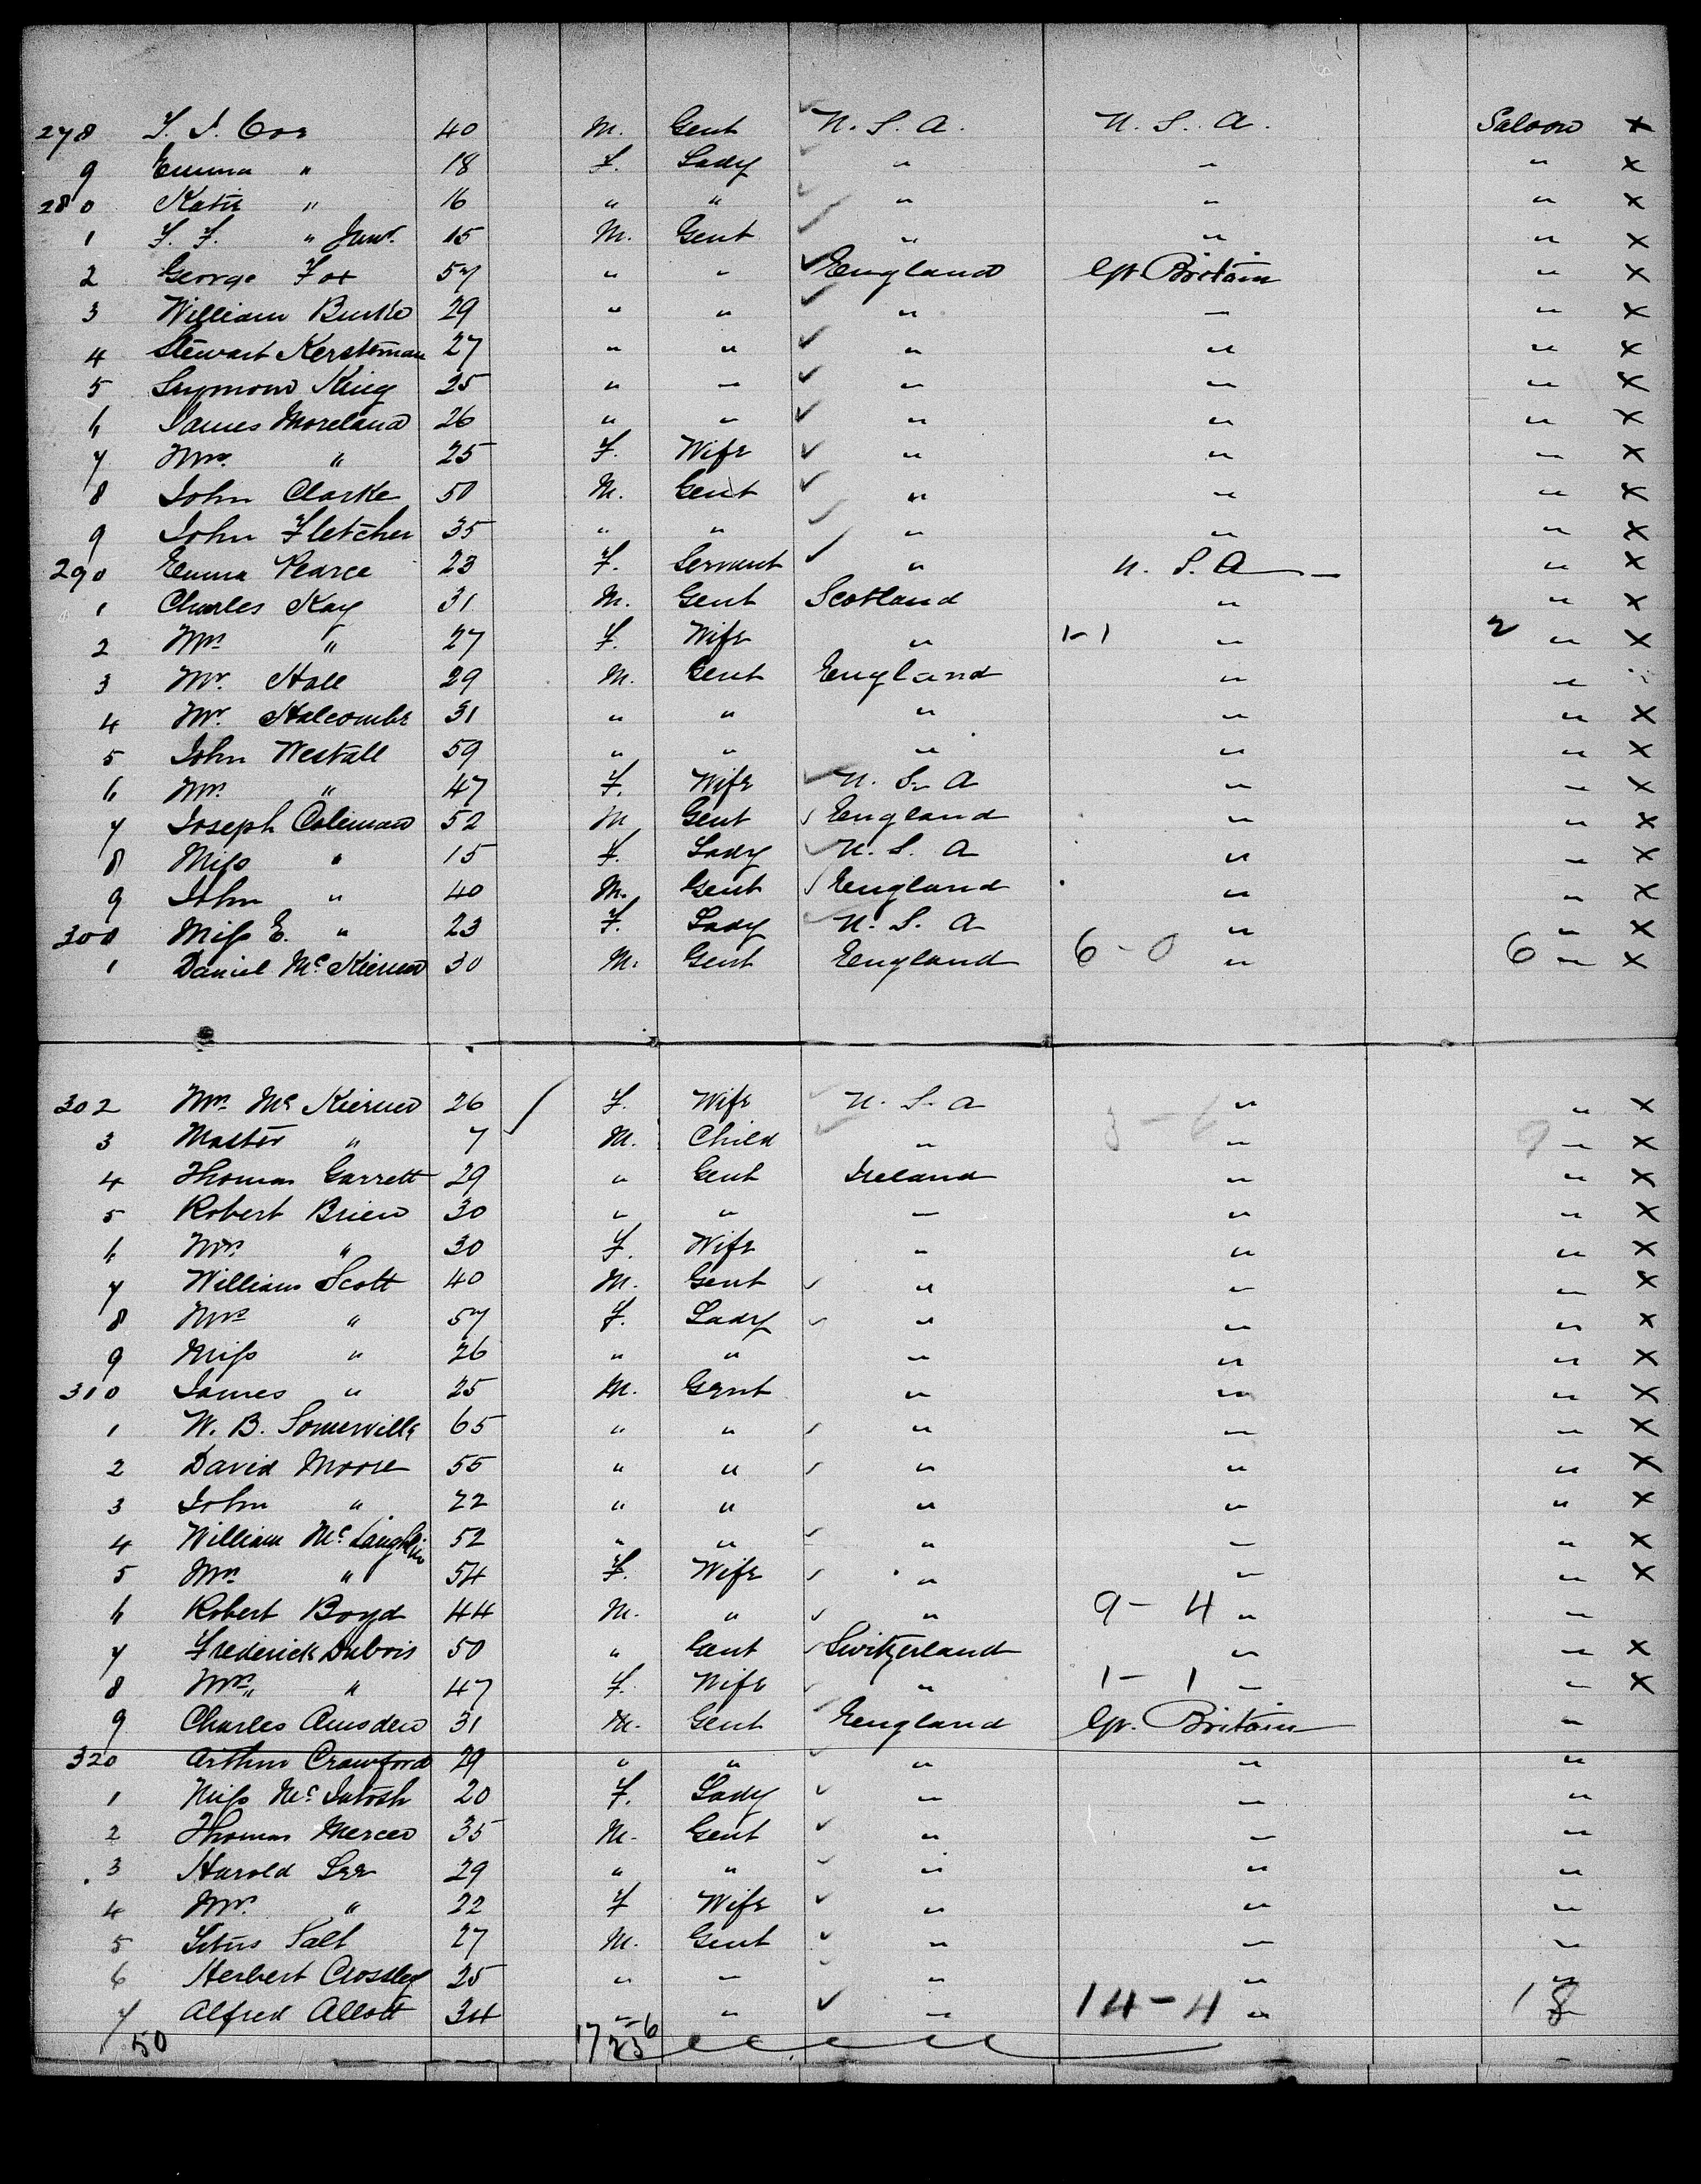 278 40 M. Gent U. S. A. U. S. A. Saloon x
9 Emma " 18 F. Lady " " " x
280 Katie " 16 " " " " " x
1 F. F. " Junr. 15 M. Gent " " " x
2 George Fox 57 " " England Gr. Britain " x
3 William Burke 29 " " " " " x
4 Stewart Kersteman 27 " " " " " x
5 King 25 " " " " " x
6 James Moreland 26 " " " " " x
7 Mrs. " 25 F. Wife " " " x
8 John Clarke 50 M. Gent " " " x
9 John Fletcher 35 " " " " " x
290 Emma Pearce 23 F. Servant " U. S. A " x
1 Charles Kay 31 M. Gent Scotland " " x
2 Mrs " 27 F. Wife " 1-1 " 2 " x
3 Mr. Hall 29 M. Gent England " "
4 Mr. Halcombe 31 " " " " " x
5 John Westall 59 " " " " " x
6 Mrs. " 47 F. Wife U. S. A " " x
7 Joseph Coleman 52 M Gent England " " x
8 Miss " 15 F. Lady U. S. A " " x
9 John " 40 M. Gent England " " x
300 Miss E. " 23 F. Lady U. S. A " " x
1 Daniel Mc Kiernen 30 M. Gent England 6-0 " 6 " x
302 Mrs Mc Kiernen 26 F. Wife U. S. A " " x
3 Master " 7 M. Child " " 9 " x
4 Thomas Garrett 29 " Gent Ireland " " x
5 Robert Brien 30 " " " " " x
6 Mrs. " 30 F. Wife " " " x
7 William Scott 40 M. Gent " " " x
8 Mrs " 57 F. Lady " " " x
9 Miss " 26 " " " " " x
310 James " 25 M. Gent " " " x
1 W. B. Somerville 65 " " " " " x
2 David Moore 55 " " " " " x
3 John " 22 " " " " " x
4 William Mc Laughlin 52 " " " " " x
5 Mrs " 54 F. Wife " " " x
6 Robert Boyd 44 M. " " 9-4 " "
7 Frederick Dubois 50 " Gent Switzerland " " x
8 Mrs " 47 F. Wife " 1-1 " " x
9 Charles Amsden 31 M. Gent England Gr. Britain "
320 Arthur Crawford 29 " " " " "
1 Miss Mc Intosh 20 F. Lady " " "
2 Thomas Mercer 35 M. Gent " " "
3 Harold Lee 29 " " " " "
4 Mrs. " 22 F Wife " " "
5 Titus Salt 27 M. Gent " " "
6 Herbert Crossley 25 " " " " "
7 Alfred Allott 34 " " " 14-4 " 18 "
50 17